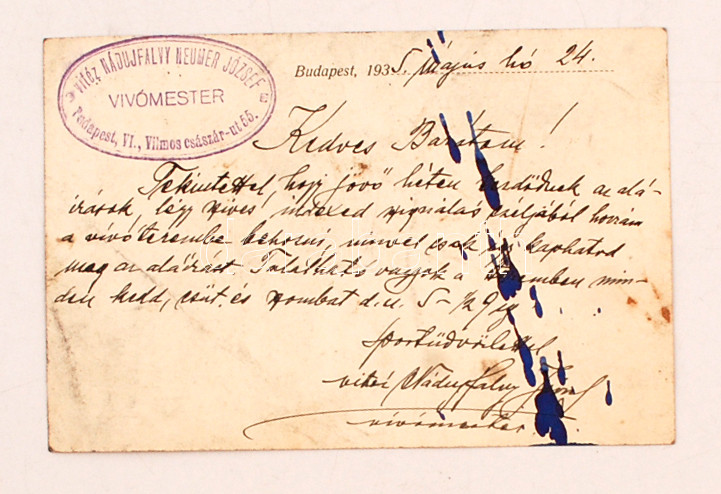 vitéz NÁDUJFALVY NEUMER JÓZSEF
VIVÓMESTER
Budapest, VI., Vilmos császár-ut 55.
Budapest, 1935. Május hó 24.
Kedves Barátom!
Tekintettel, hogy jövő héten kezdődnek az alá-
írások, légy szíves indexed céljából hozzám
a vívóterembe behozni, mivel csak így kaphatod
meg az aláírást. Található vagyok a teremben min-
den kedd, csüt. és szombat d.u. 5-1/2 9 ig
Sportüdvözlettel
vitéz Nádujfalvy József
vívómester